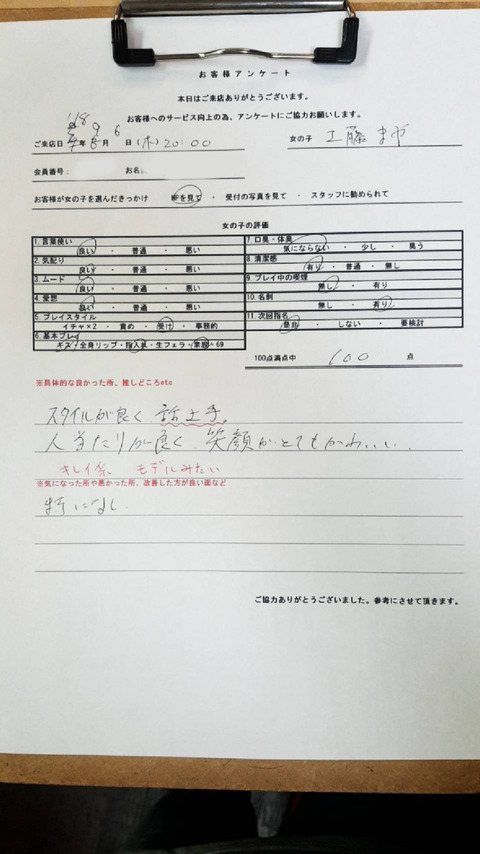 お客様アンケート
本日はご来店ありがとうございます。
お客様へのサービス向上の為、アンケートにご協力お願します。
'18 9 6
ご来店日 年 月 日 (木) 20:00 女の子 工藤 まや
会員番号: お名:
お客様が女の子を選んだきっかけ HPを見て ・ 受付の写真を見て ・ スタッフに勧められて
女の子の評価
1. 言葉使い
良い ・ 普通 ・ 悪い
2. 気配り
良い ・ 普通 ・ 悪い
3. ムード
良い ・ 普通 ・ 悪い
4. 愛想
良い ・ 普通 ・ 悪い
5. プレイスタイル
イチャ×2 ・ 責め ・ 受け ・ 事務的
6. 基本プレイ
キス/全身リップ・指入れ・生フェラ・素股・69
7. 口臭・体臭
気にならない ・ 少し ・ 臭う
8. 清潔感
有り ・ 普通 ・ 無し
9. プレイ中の喫煙
無し ・ 有り
10. 名刺
無し ・ 有り
11. 次回指名
是非 ・ しない ・ 要検討
100点満点中 100 点
※具体的な良かった所、推しどころetc
スタイルが良く 話上手。
人当たりが良く 笑顔がとてもかわいい.
キレイ系 モデルみたい
※気になった所や悪かった所、改善した方が良い面など
特になし
ご協力ありがとうございました。参考にさせて頂きます。